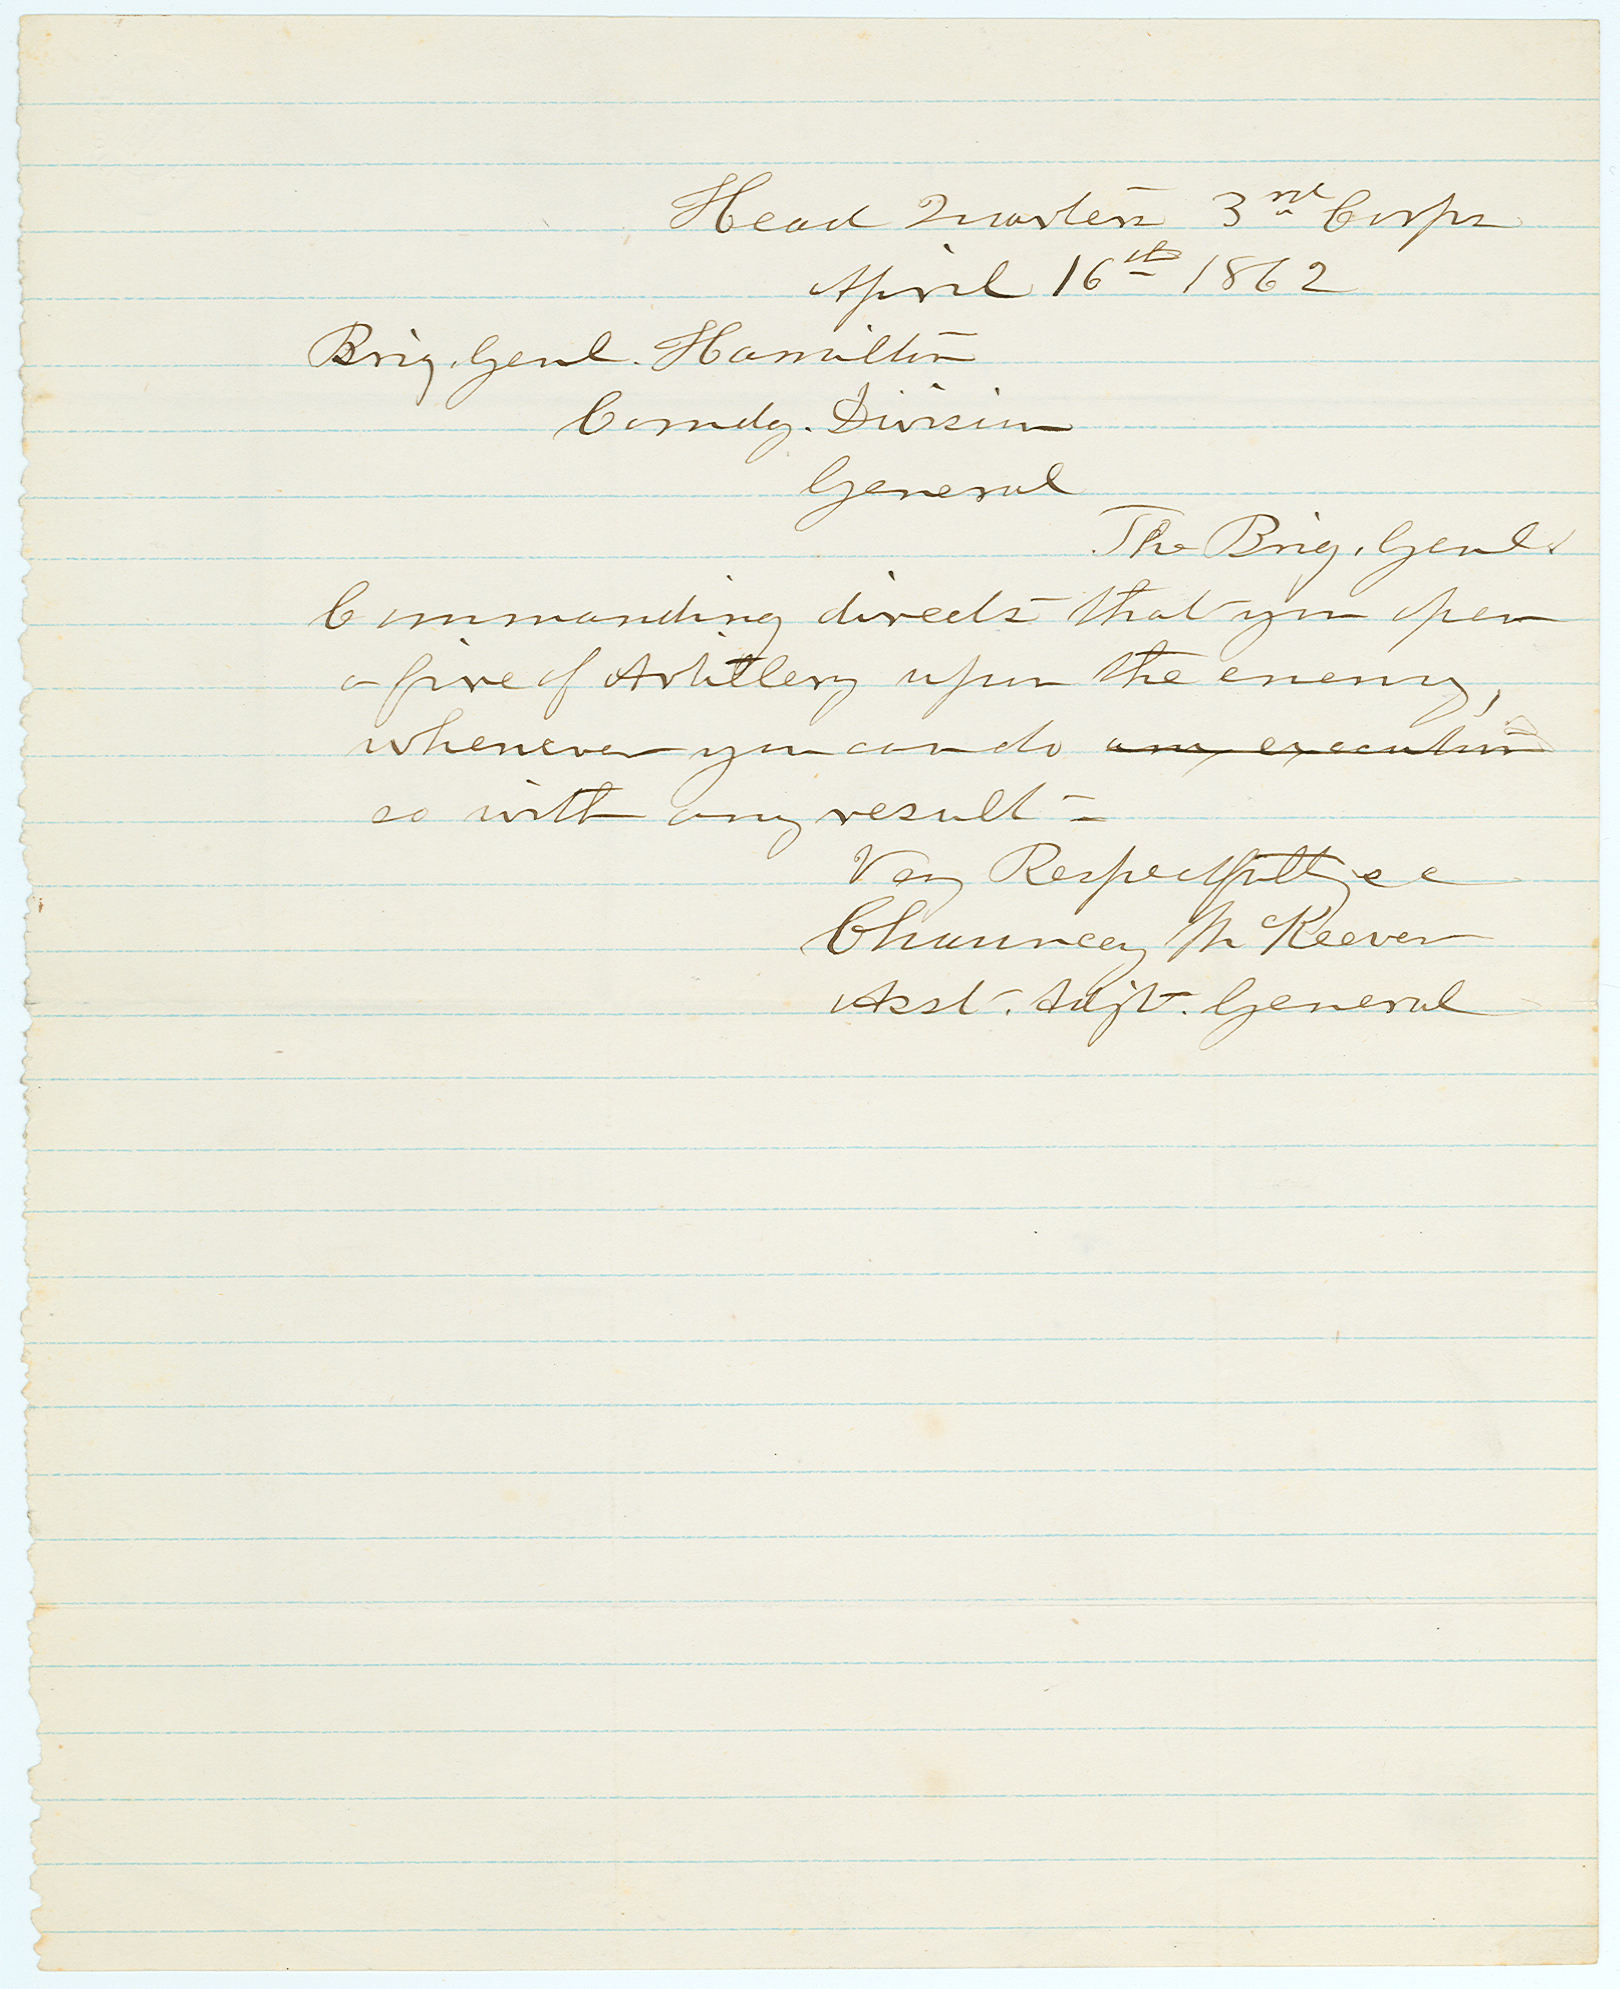 Head Quarters 3rd Corps
April 16th 1862
Brig. Genl. Hamilton
Comdg. Division
General
The Brig. Genl.
Commanding directs that you open
a fire of Artillery upon the enemy,
whenever you can do any execution
so with any result -
Very Respectfully &c
Chauncey McKeever
Asst. Adjt. General